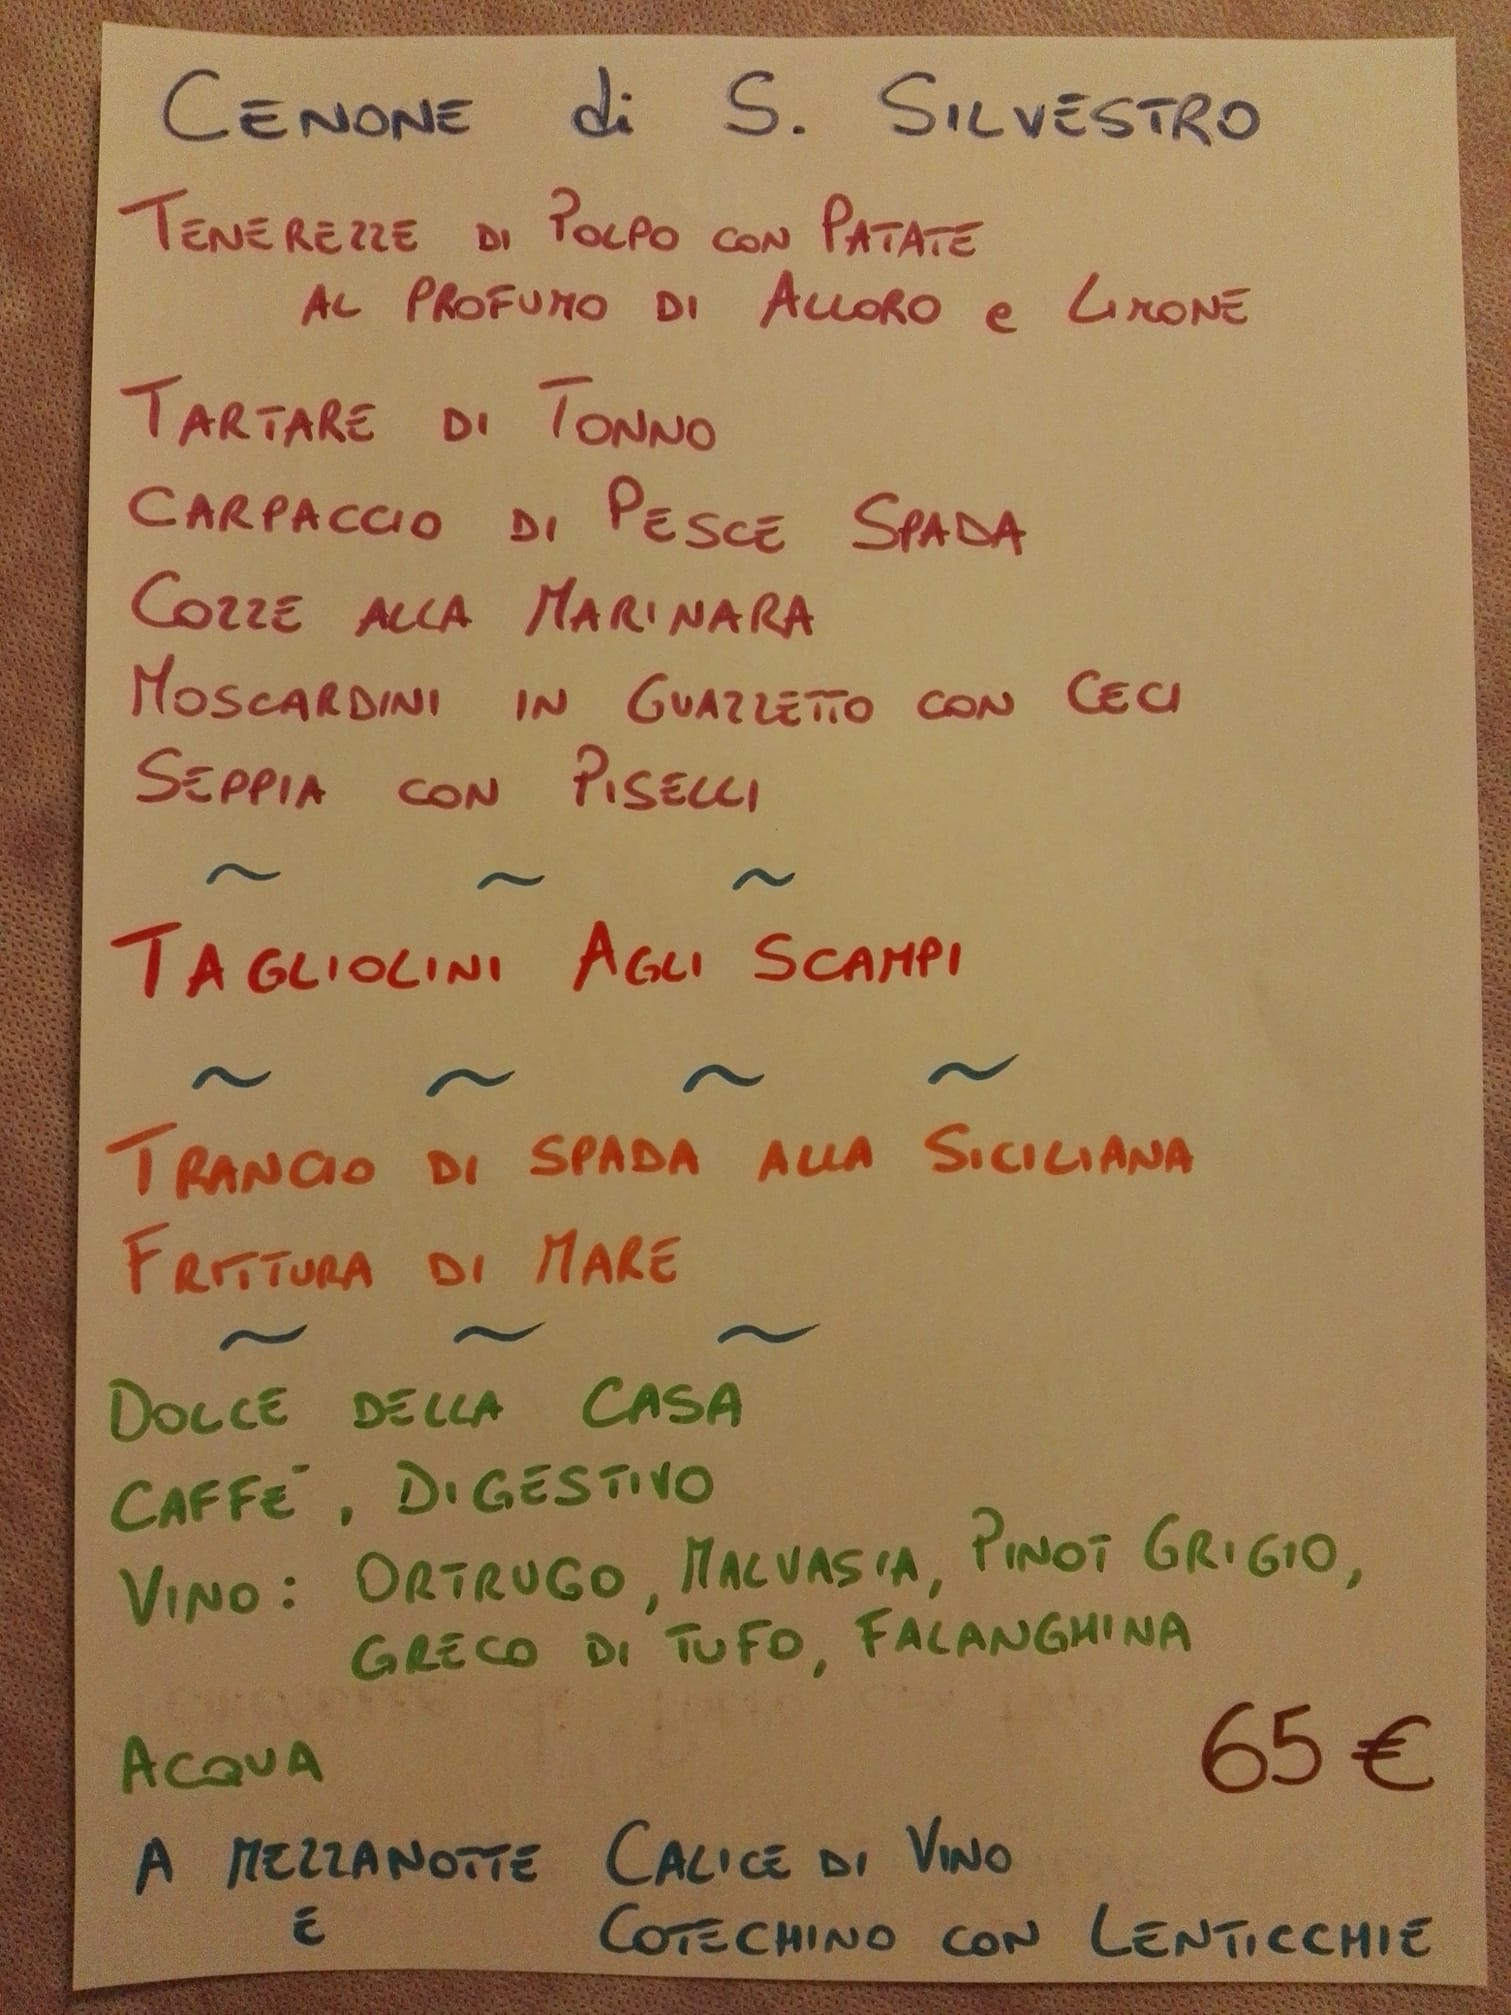 CENONE di S. SILVESTRO
TENEREZZE DI POLPO CON PATATE
AL PROFUMO DI ALLORO e LIMONE
TARTARE DI TONNO
CARPACCIO DI PESCE SPADA
COZZE ALLA MARINARA
MOSCARDINI IN GUAZZETTO CON CECI
SEPPIA CON PISELLI
~ ~ ~
TAGLIOLINI AGLI SCAMPI
~ ~ ~ ~
TRANCIO DI SPADA ALLA SICILIANA
FRITTURA DI MARE
~ ~ ~
DOLCE DELLA CASA
CAFFE', DIGESTIVO
VINO: ORTRUGO, MALVASIA, PINOT GRIGIO,
GRECO DI TUFO, FALANGHINA
ACQUA
65 €
A MEZZANOTTE CALICE DI VINO
E COTECHINO CON LENTICCHIE